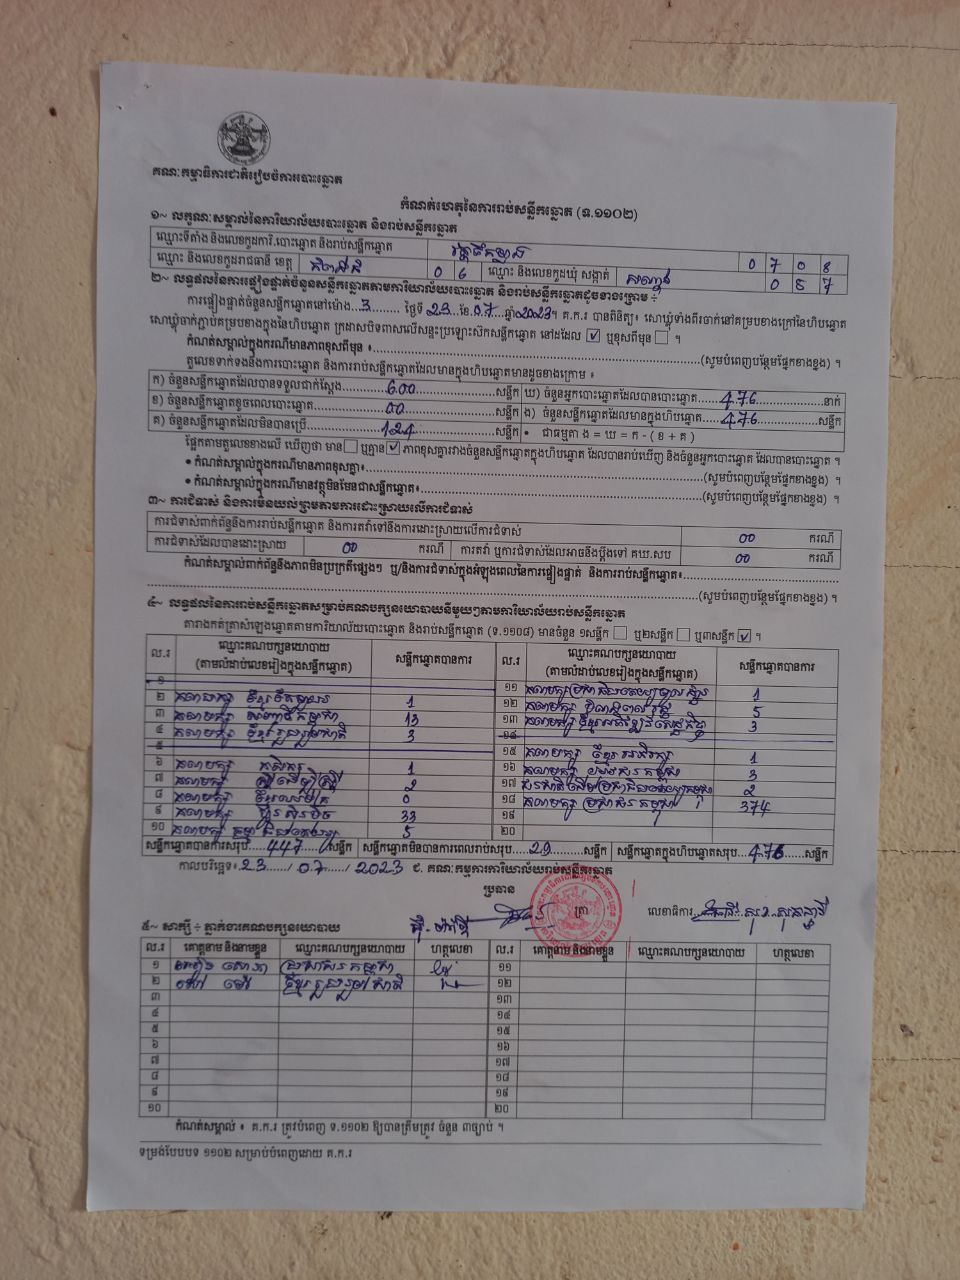 គណៈកម្មាធិការជាតិរៀបចំការបោះឆ្នោត
កំណត់ហេតុនៃការរាប់សន្លឹកឆ្នោត (ទ.១១០២)
១~ លក្ខណៈសម្គាល់នៃការិយាល័យបោះឆ្នោត និងរាប់សន្លឹកឆ្នោត
ឈ្មោះទីតាំង និងលេខកូដការិ.បោះឆ្នោត និងរាប់សន្លឹកឆ្នោត 0 7 0 8
ឈ្មោះ និងលេខកូដរាជធានី ខេត្ត កំពង់ធំ 0 6 ឈ្មោះ និងលេខកូដឃុំ សង្កាត់ 0 5 7
២~ លទ្ធផលនៃការផ្ទៀងផ្ទាត់ចំនួនសន្លឹកឆ្នោតតាមការិយាល័យបោះឆ្នោត និងរាប់សន្លឹកឆ្នោតដូចខាងក្រោម ÷
ការផ្ទៀងផ្ទាត់ចំនួនសន្លឹកឆ្នោតនៅម៉ោង 3 ថ្ងៃទី 23 ខែ 07 ឆ្នាំ 2023 ។ គ.ក.រ បានពិនិត្យ៖ សោឃ្លុំទាំងពីរចាក់នៅគម្របខាងក្រៅនៃហិបឆ្នោត
សោឃ្លុំចាក់ភ្ជាប់គម្របខាងក្នុងនៃហិបឆ្នោត ក្រដាសបិទពាសលើសន្ទះប្រឡោះស៊កសន្លឹកឆ្នោត នៅដដែល ☑ ឬខុសពីមុន ☐ ។
កំណត់សម្គាល់ក្នុងករណីមានភាពខុសពីមុន ៖ (សូមបំពេញបន្ថែមផ្នែកខាងខ្នង) ។
តួលេខទាក់ទងនឹងការបោះឆ្នោត និងការរាប់សន្លឹកឆ្នោតដែលមានក្នុងហិបឆ្នោតមានដូចខាងក្រោម ៖
ក) ចំនួនសន្លឹកឆ្នោតដែលបានទទួលជាក់ស្តែង 600 សន្លឹក ឃ) ចំនួនអ្នកបោះឆ្នោតដែលបានបោះឆ្នោត 476 នាក់
ខ) ចំនួនសន្លឹកឆ្នោតខូចពេលបោះឆ្នោត 00 សន្លឹក ង) ចំនួនសន្លឹកឆ្នោតដែលមានក្នុងហិបឆ្នោត 476 សន្លឹក
គ) ចំនួនសន្លឹកឆ្នោតដែលមិនបានប្រើ 124 សន្លឹក • ជាធម្មតា ង = ឃ = ក - ( ខ + គ )
ផ្អែកតាមតួលេខខាងលើ ឃើញថា មាន ☐ ឬគ្មាន ☑ ភាពខុសគ្នារវាងចំនួនសន្លឹកឆ្នោតក្នុងហិបឆ្នោត ដែលបានរាប់ឃើញ និងចំនួនអ្នកបោះឆ្នោត ដែលបានបោះឆ្នោត ។
• កំណត់សម្គាល់ក្នុងករណីមានភាពខុសគ្នា៖ (សូមបំពេញបន្ថែមផ្នែកខាងខ្នង) ។
• កំណត់សម្គាល់ក្នុងករណីមានវត្ថុមិនមែនជាសន្លឹកឆ្នោត៖ (សូមបំពេញបន្ថែមផ្នែកខាងខ្នង) ។
៣~ ការជំទាស់ និងការមិនយល់ព្រមតាមការដោះស្រាយលើការជំទាស់
ការជំទាស់ពាក់ព័ន្ធនឹងការរាប់សន្លឹកឆ្នោត និងការតវ៉ាទៅនឹងការដោះស្រាយលើការជំទាស់ 00 ករណី
ការជំទាស់ដែលបានដោះស្រាយ 00 ករណី ការតវ៉ា ឬការជំទាស់ដែលអាចនឹងប្តឹងទៅ គឃ.សប 00 ករណី
កំណត់សម្គាល់ពាក់ព័ន្ធនឹងភាពមិនប្រក្រតីផ្សេងៗ ឬ/និងការជំទាស់ក្នុងអំឡុងពេលនៃការផ្ទៀងផ្ទាត់ និងការរាប់សន្លឹកឆ្នោត៖
(សូមបំពេញបន្ថែមផ្នែកខាងខ្នង) ។
៤~ លទ្ធផលនៃការរាប់សន្លឹកឆ្នោតសម្រាប់គណបក្សនយោបាយនីមួយៗតាមការិយាល័យរាប់សន្លឹកឆ្នោត
តារាងកត់ត្រាសំឡេងឆ្នោតតាមការិយាល័យបោះឆ្នោត និងរាប់សន្លឹកឆ្នោត (ទ.១១០៨) មានចំនួន ១សន្លឹក ☐ ឬ២សន្លឹក ☐ ឬ៣សន្លឹក ☑ ។
ល.រ ឈ្មោះគណបក្សនយោបាយ (តាមលំដាប់លេខរៀងក្នុងសន្លឹកឆ្នោត) សន្លឹកឆ្នោតបានការ ល.រ ឈ្មោះគណបក្សនយោបាយ (តាមលំដាប់លេខរៀងក្នុងសន្លឹកឆ្នោត) សន្លឹកឆ្នោតបានការ
១ ១១ 1
២ គណបក្ស 1 ១២ គណបក្ស 5
៣ គណបក្ស 13 ១៣ គណបក្ស 3
៤ គណបក្ស ខ្មែររួបរួមជាតិ 3 ១៤
៥ ១៥ គណបក្ស ខ្មែរអភិរក្ស 1
៦ គណបក្ស កសិករ 1 ១៦ គណបក្ស 3
៧ គណបក្ស ស្ត្រីដើម្បីស្ត្រី 2 ១៧ 2
៨ គណបក្ស 0 ១៨ គណបក្ស ប្រជាជនកម្ពុជា 374
៩ គណបក្ស ហ៊្វុនស៊ិនប៉ិច 33 ១៩
១០ គណបក្ស 5 ២០
សន្លឹកឆ្នោតបានការសរុប 447 សន្លឹក សន្លឹកឆ្នោតមិនបានការពេលរាប់សរុប 29 សន្លឹក សន្លឹកឆ្នោតក្នុងហិបឆ្នោតសរុប 476 សន្លឹក
កាលបរិច្ឆេទ៖ 23 / 07 / 2023 ជ. គណៈកម្មការការិយាល័យរាប់សន្លឹកឆ្នោត
ប្រធាន
ត្រា លេខាធិការ
៥~ សាក្សី ÷ ភ្នាក់ងារគណបក្សនយោបាយ
ល.រ គោត្តនាម និងនាមខ្លួន ឈ្មោះគណបក្សនយោបាយ ហត្ថលេខា ល.រ គោត្តនាម និងនាមខ្លួន ឈ្មោះគណបក្សនយោបាយ ហត្ថលេខា
១ ប្រជាជនកម្ពុជា ១១
២ ខ្មែររួបរួមជាតិ ១២
៣ ១៣
៤ ១៤
៥ ១៥
៦ ១៦
៧ ១៧
៨ ១៨
៩ ១៩
១០ ២០
កំណត់សម្គាល់ ៖ គ.ក.រ ត្រូវបំពេញ ទ.១១០២ ឱ្យបានត្រឹមត្រូវ ចំនួន ៣ច្បាប់ ។
ទម្រង់បែបបទ ១១០២ សម្រាប់បំពេញដោយ គ.ក.រ